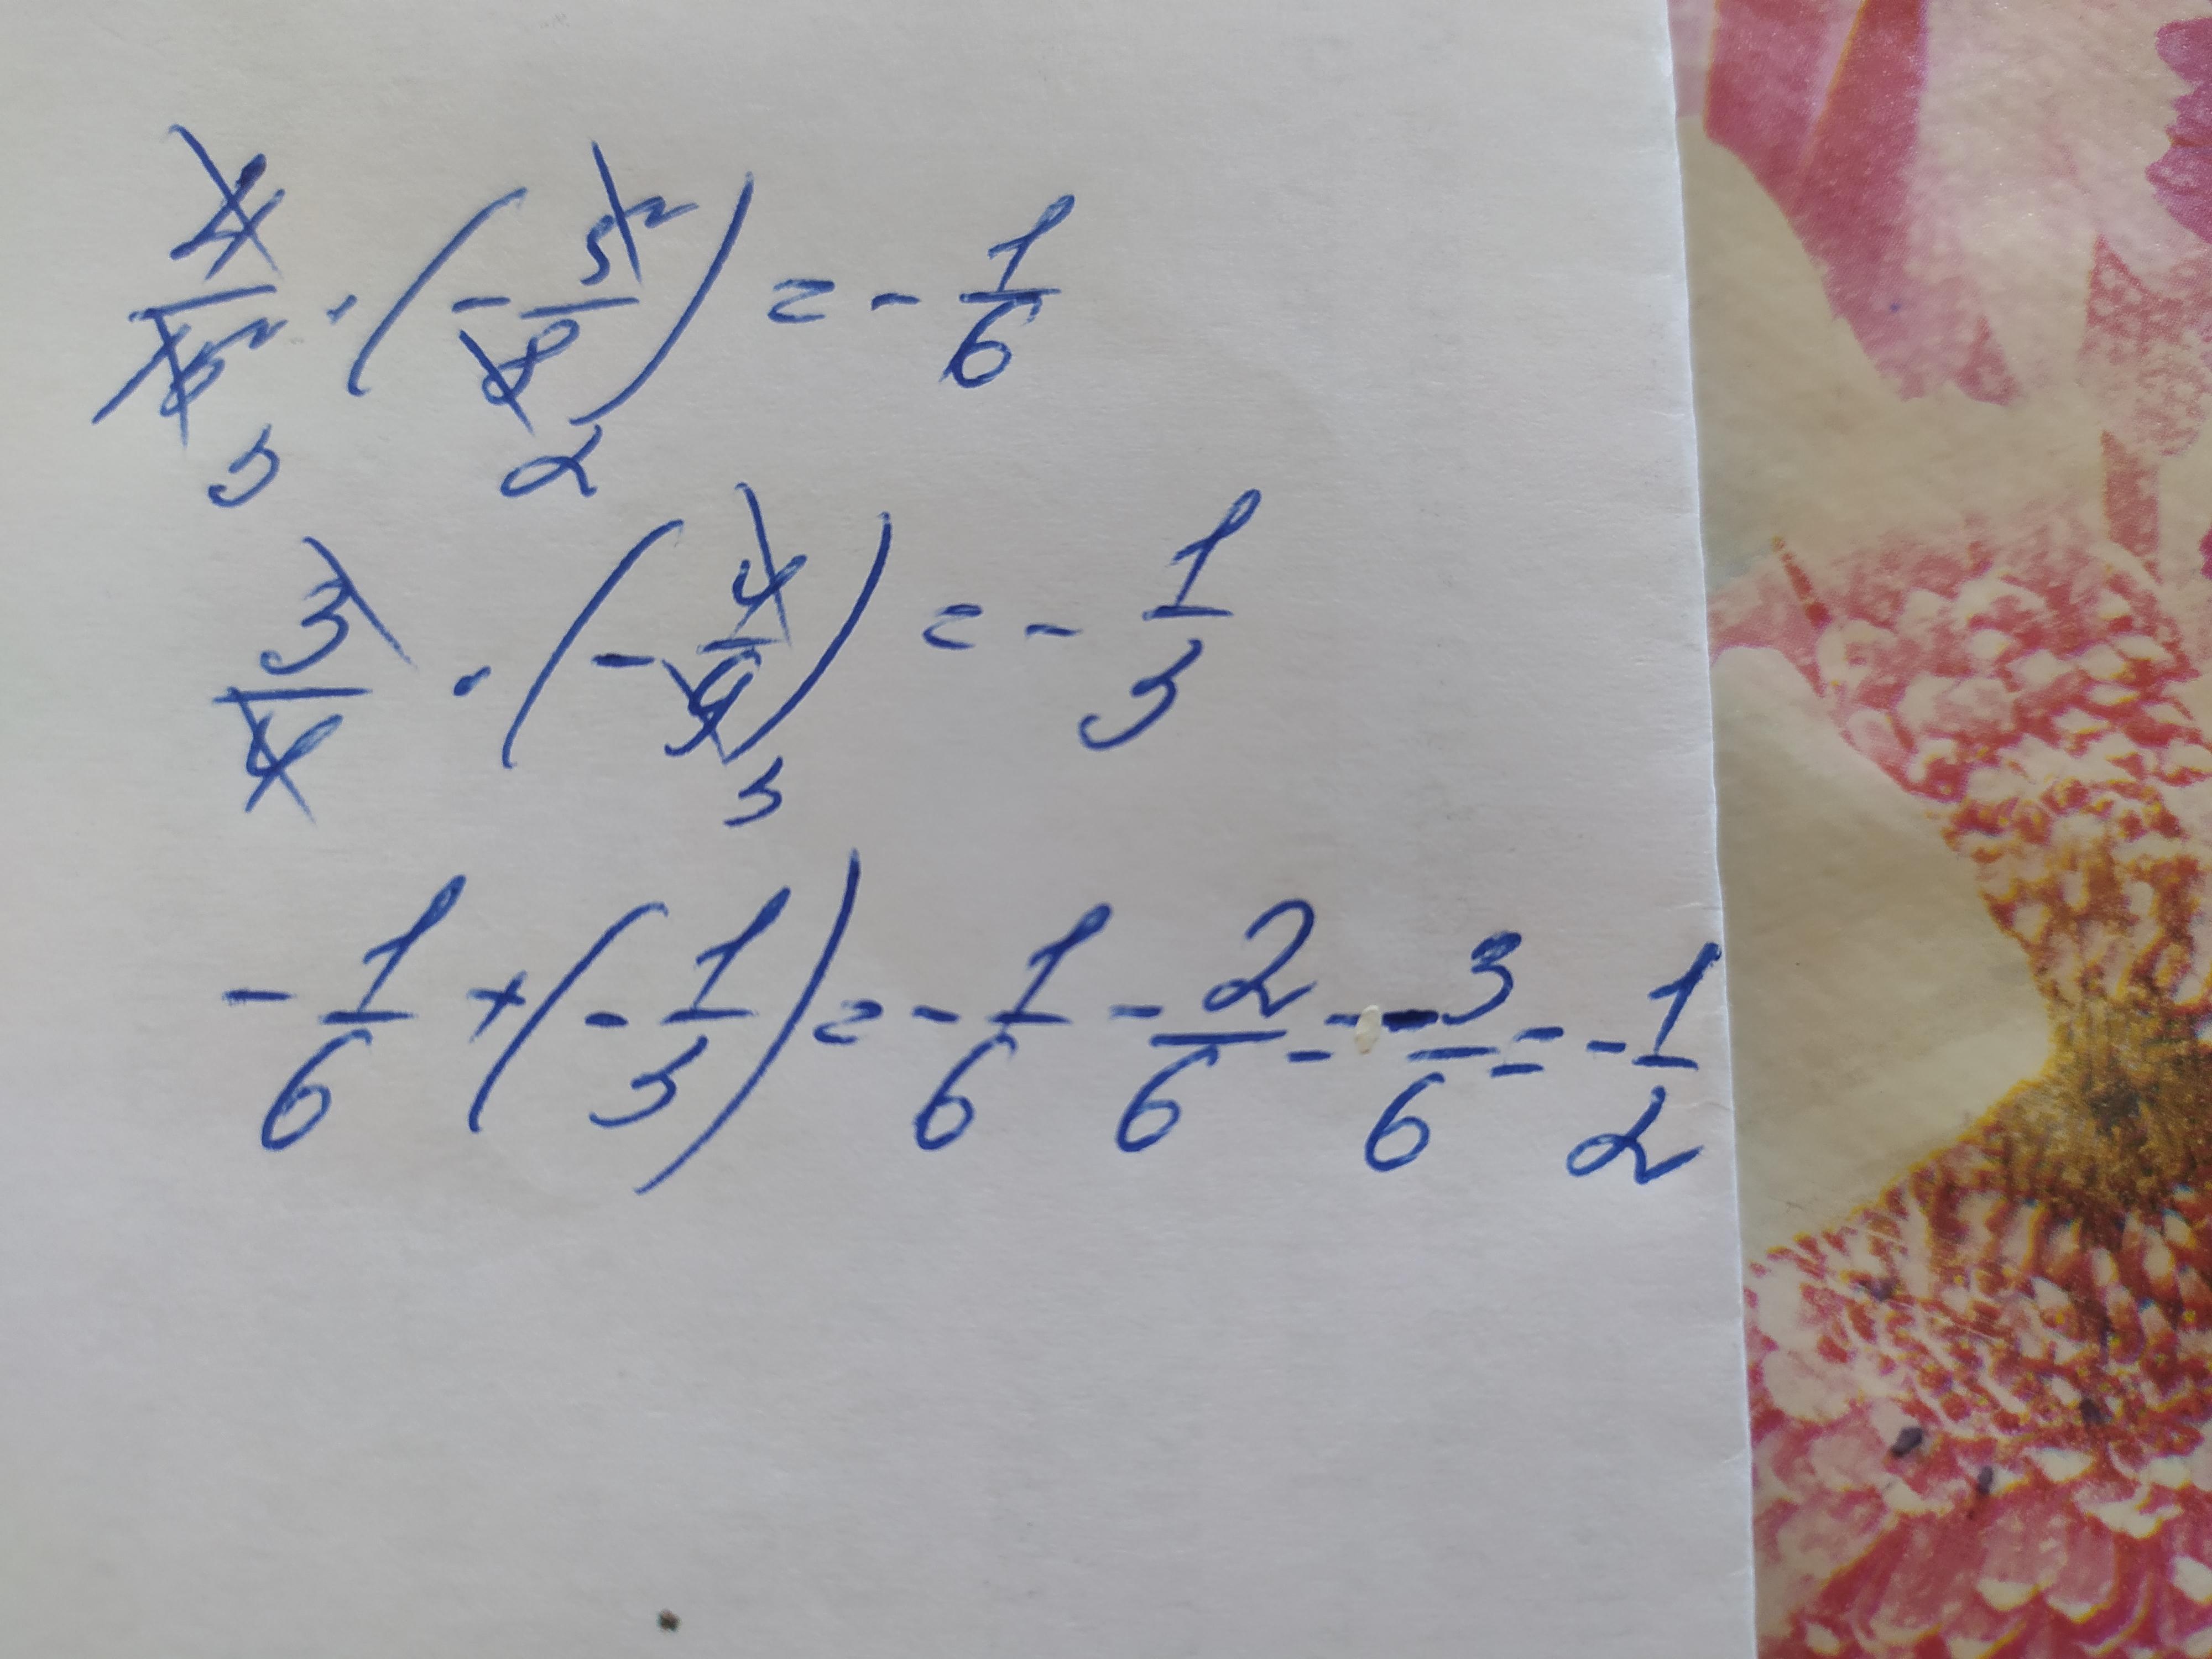 4/15 · (-5/8) = -1/6
3 2
3/4 · (-4/9) = -1/3
3
-1/6 + (-1/3) = -1/6 - 2/6 = -3/6 = -1/2